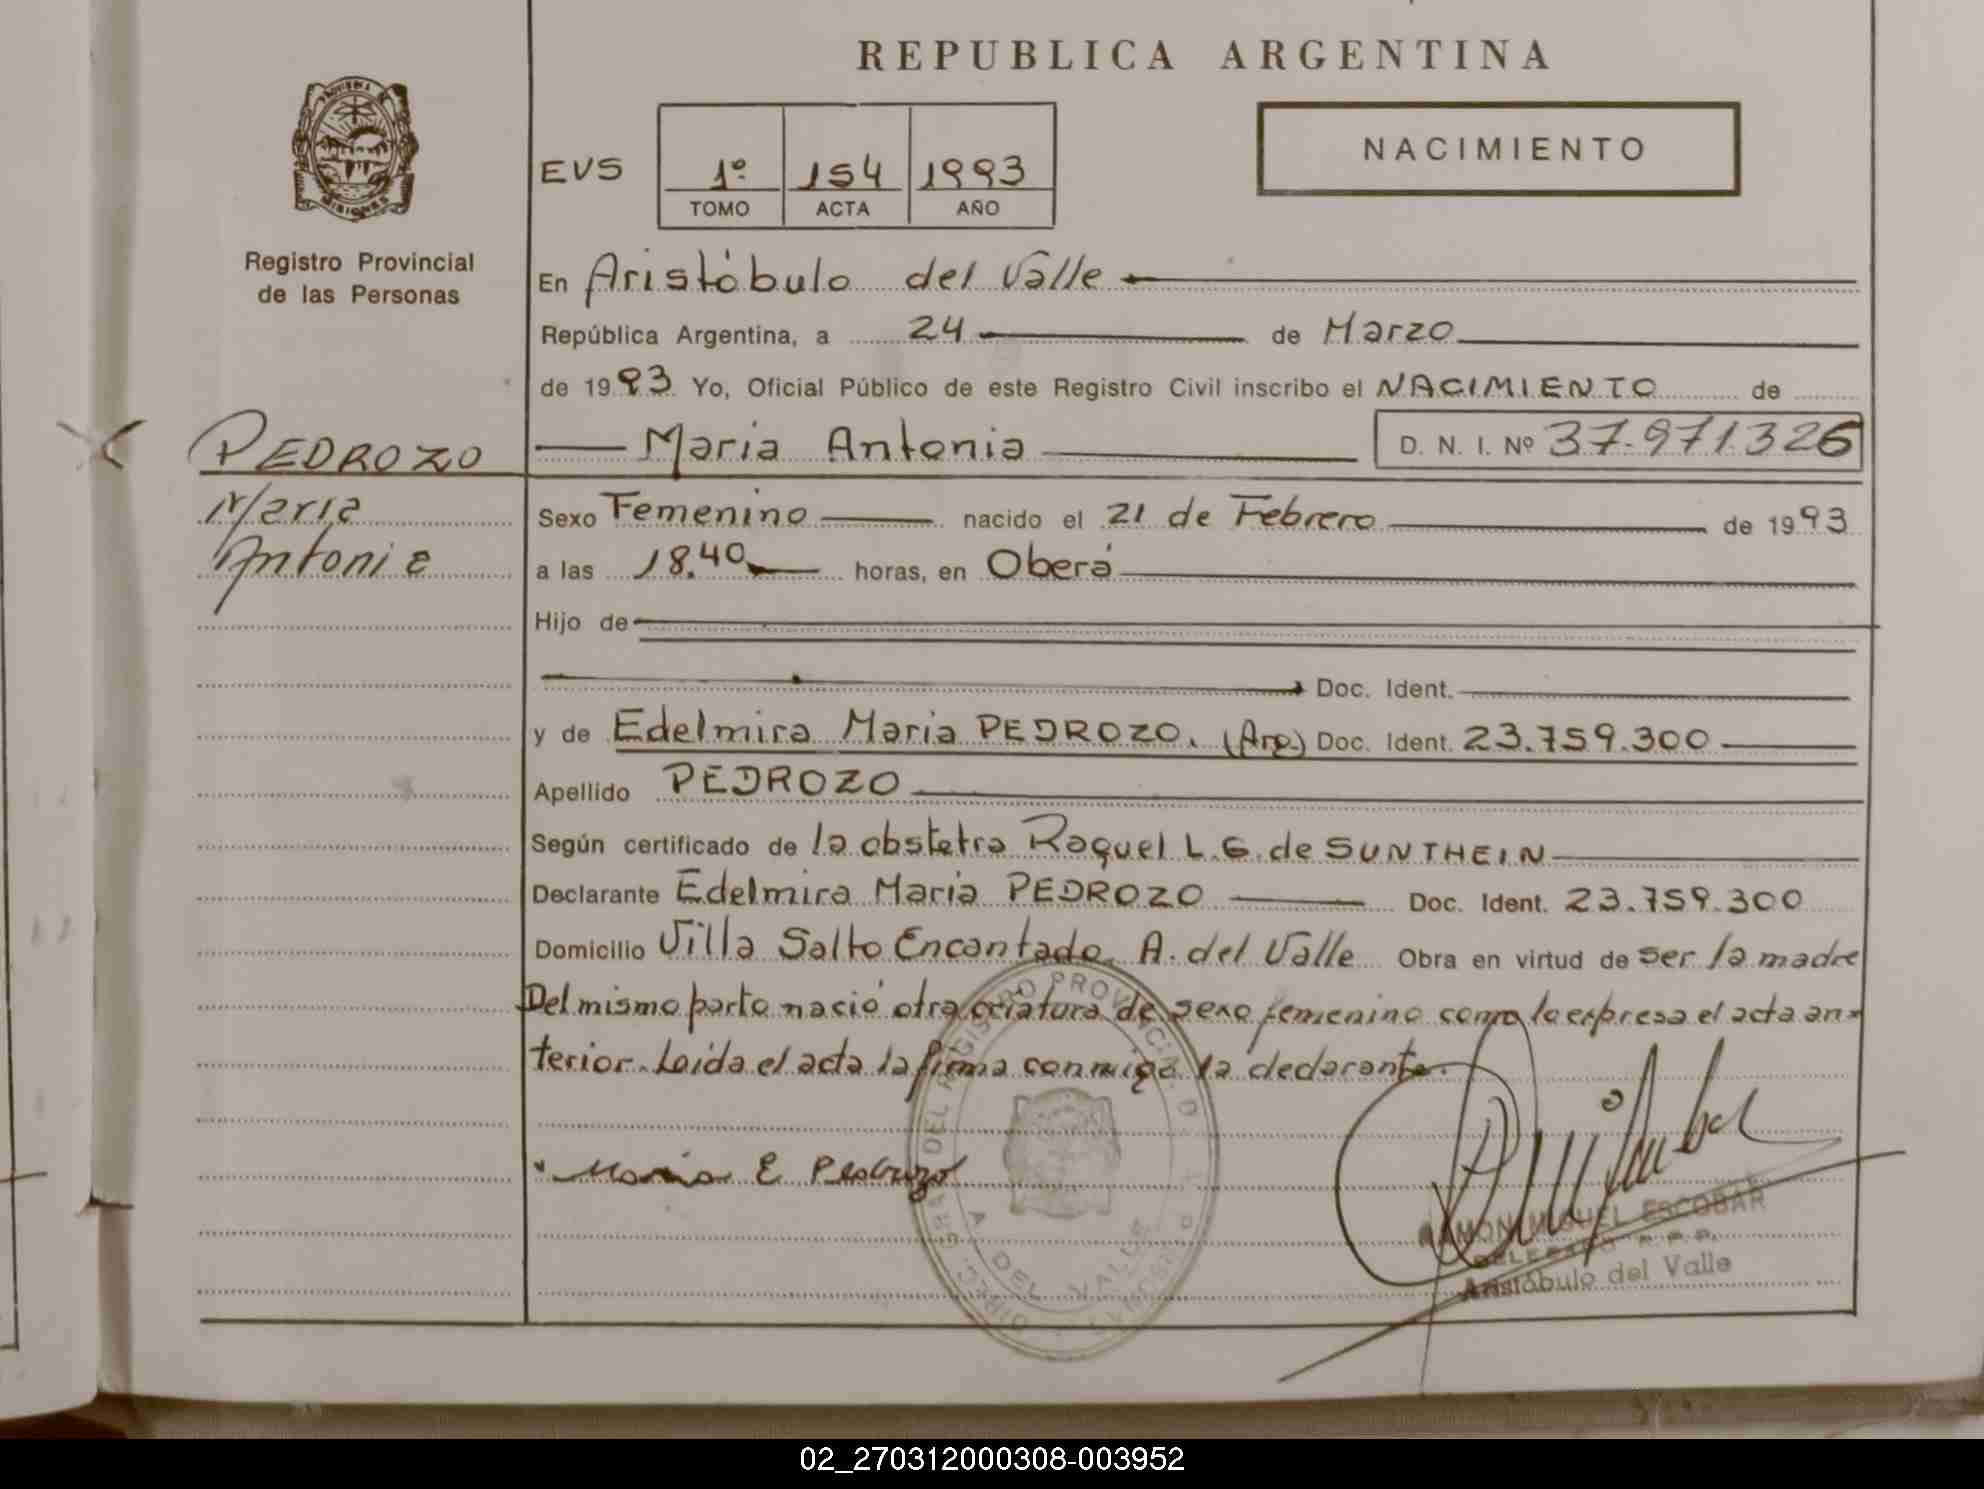 REPUBLICA ARGENTINA
NACIMIENTO
EVS 1º 154 1993
TOMO ACTA AÑO
Registro Provincial
de las Personas
En Aristóbulo del Valle
República Argentina, a 24 de Marzo
de 1993 Yo, Oficial Público de este Registro Civil inscribo el NACIMIENTO de
PEDROZO
Maria Antonia D. N. I. Nº 37.971.326
Maria
Antonia
Sexo Femenino nacido el 21 de Febrero de 1993
a las 18.40 horas, en Oberá
Hijo de
Doc. Ident.
y de Edelmira Maria PEDROZO. (Arg.) Doc. Ident. 23.759.300
Apellido PEDROZO
Según certificado de la obstetra Raquel L. G. de SUNTHEIN
Declarante Edelmira Maria PEDROZO Doc. Ident. 23.759.300
Domicilio Villa Salto Encantado. A. del Valle Obra en virtud de ser la madre
Del mismo parto nació otra criatura de sexo femenino como lo expresa el acta an-
terior. Leida el acta la firma conmigo la declarante.
Maria E Pedrozo
RAMON MIGUEL ESCOBAR
DELEGADO R.P.P.
Aristóbulo del Valle
A. DEL VALLE
02_270312000308-003952